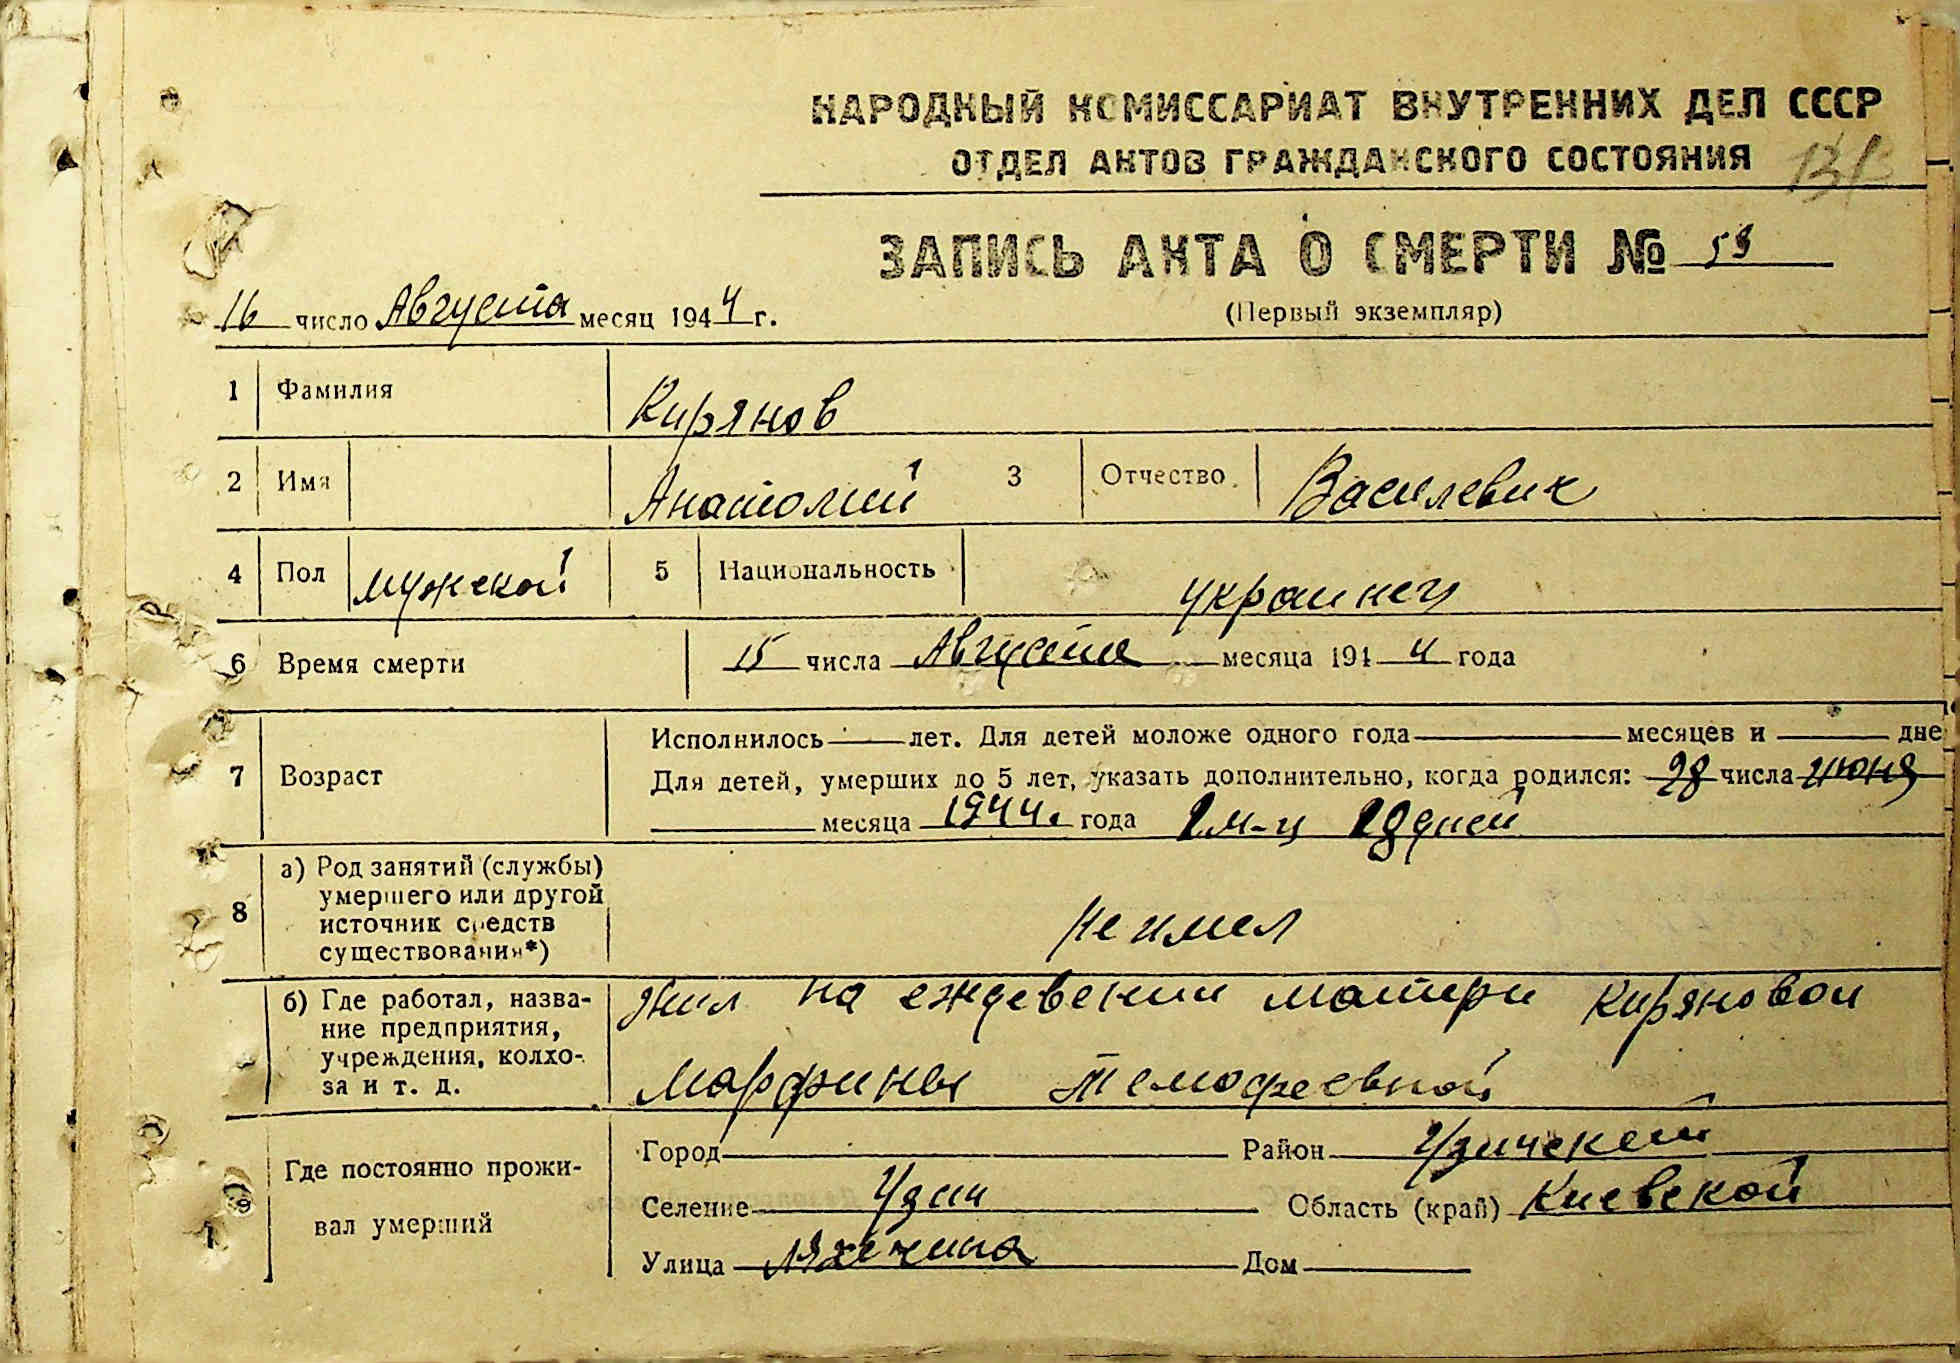 НАРОДНЫЙ КОМИССАРИАТ ВНУТРЕННИХ ДЕЛ СССР
ОТДЕЛ АКТОВ ГРАЖДАНСКОГО СОСТОЯНИЯ
ЗАПИСЬ АКТА О СМЕРТИ №
(Первый экземпляр)
16 число Августа месяц 1944 г.
1 Фамилия Кирянов
2 Имя Анатолий 3 Отчество Василевич
4 Пол мужской 5 Национальность украинец
6 Время смерти 15 числа Августа месяца 1944 года
7 Возраст
Исполнилось лет. Для детей моложе одного года месяцев и дне
Для детей, умерших до 5 лет, указать дополнительно, когда родился: 28 числа июня
месяца 1944 г. года 1 м-ц 18 дней
8 а) Род занятий (службы) умершего или другой источник средств существования*) Не имел
б) Где работал, назва-
ние предприятия,
учреждения, колхо-
за и т. д.
Жил на еждевении матери Киряновой
Марфины Темофеевной
9 Где постоянно прожи-
вал умерший
Город Район Узинский
Селение Узин Область (край) Киевской
Улица Дом